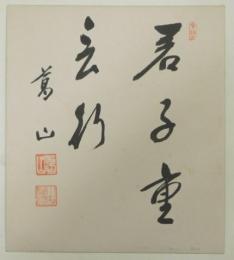 君子重
言行
葛山